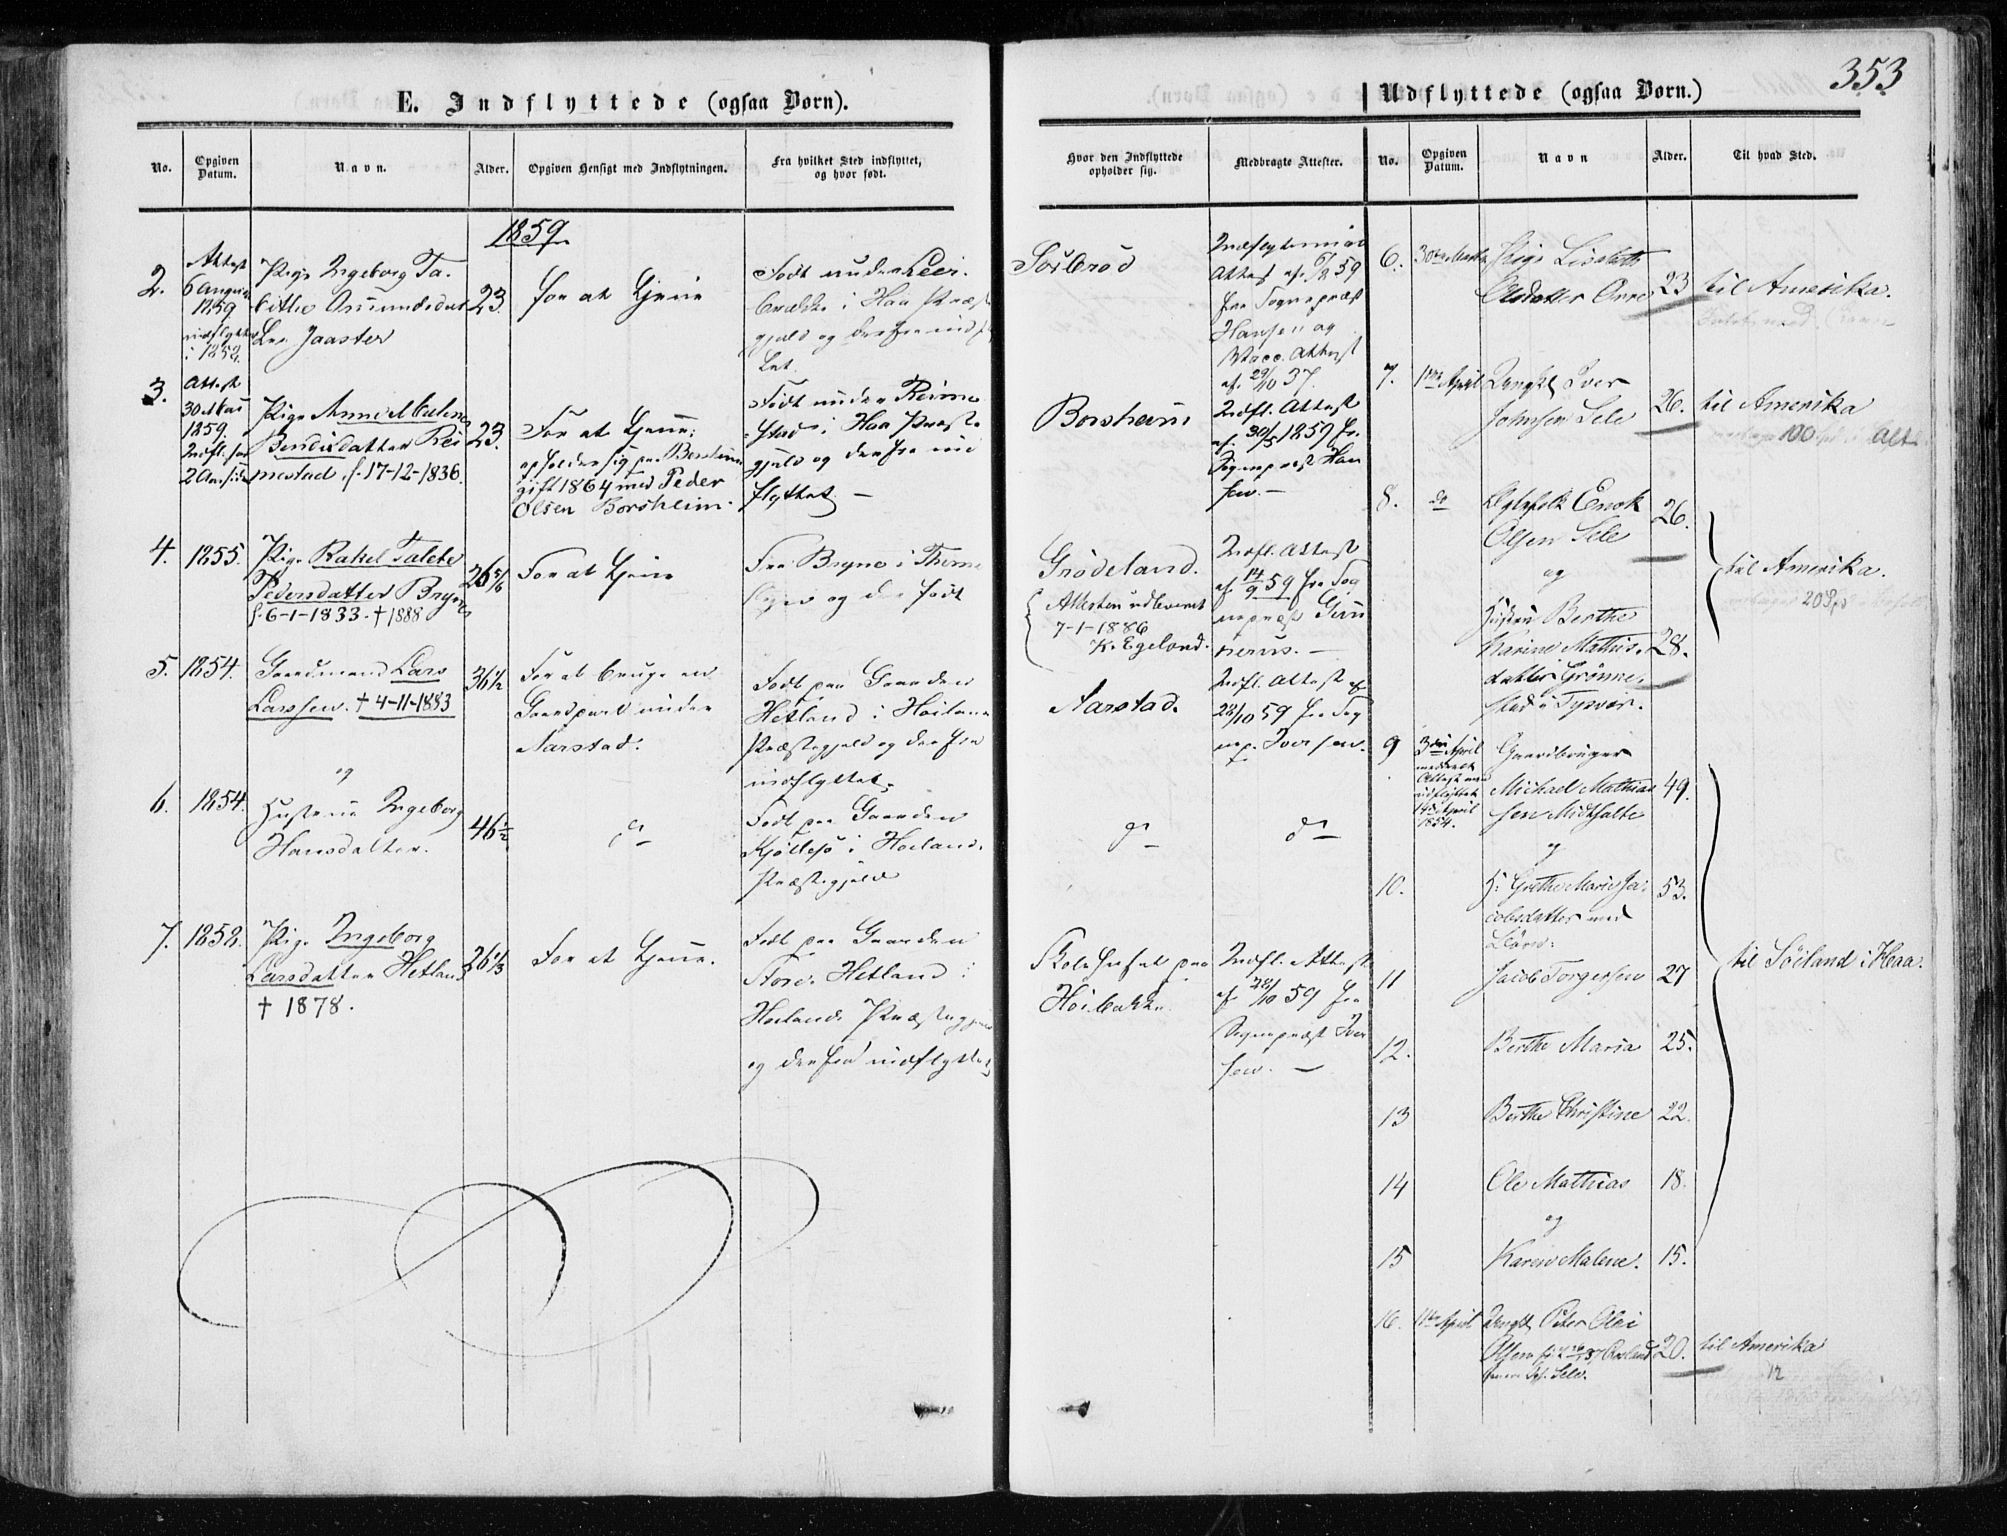 353
E. Indflyttede (ogsaa Børn).
No.
Opgiven Datum.
Navn.
Alder.
Opgiven Hensigt med Indflytningen.
Fra hvilket Sted indflyttet, og hvor født.
Hvor den Indflyttede opholder sig.
Medbragte Attester.
1859
2.
Attest
6 August
1859
indflyttet
i 1858.
Pige Ingeborg Ta-
bithe Osmundsdat
Jaaster
23.
For at tjene
Født under Leir-
brække i Haa Præste
gjæld og derfra indfl
tet.
Indflytnings
Attest af 6/8 59
fra Sognepræst
Hansen og
Vacc. Attest
af 29/10 37.
3.
Attest
30 Mai
1859
Indfl. for
2 Aar siden
Pige Anne Malene
Bendixdatter Rei
mestad, f. 17-12-1836.
23.
For at tjene;
opholder sig paa Borsheim
gift 1864 med Peder
Olsen Borsheim.
Født under Reime-
stad i Haa Præste
gjæld og derfra ind
flyttet. —
Borsheim
Indfl. Attest
af 30/5 1859 fr.
Sognepræst Han
sen. —
4.
1855.
Pige Rakel Talete
Pedersdatter Bryne
f. 6-1-1833. † 1888
26 5/6
For at tjene
Fra Bryne i Thime
Sogn og der født
Grödeland.
Attesten udleveret
7-1-1886
K. Egeland.
Indfl. Attest
af 14/9 59 fra Sog
nepræst Gun
nerus. —
5.
1854.
Gaardmand Lars
Larssen. † 4-11-1883
36 1/2
For at bruge en
Gaardpart under
Aarstad.
Født paa Gaarden
Hetland i Høiland
Præstegjæld og derfra
indflyttet.
Aarstad.
Indfl. Attest af
28/10 59 fra Sog
nep. Iversen.
og
6.
1854.
Hustrue Ingeborg
Hansdatter.
46 1/2
do
Født paa Gaarden
Kjøllesø i Høilands
Præstegjæld
do
do
7.
1858.
Pige Ingeborg
Larsdatter Hetland
† 1878.
26 1/3
For at tjene.
Født paa Gaarden
Store Hetland i
Høilands Præstegjæld
og derfra indflyttet
Skolehuset paa
Høibakke
Indfl. Attest
af 28/10 59 fra
Sognepræst Iver
sen. —
Udflyttede (ogsaa Børn.)
No.
Opgiven Datum.
Navn
Alder.
Til hvad Sted.
6.
30te Marts
Pige Lisabeth
Olsdatter Orre
23
til Amerika.
7.
1ste April
Ungk. Iver
Johnsen Sele
26.
til Amerika
100
8.
do
Ægtefolk Enok
Olsen Sele
26.
og
Hustru Berthe
Karine Mathis-
datter Grønne-
stad i Tysvær.
28.
til Amerika.
20 Spd
9
3die April
meddeelt
Attest med
udflyttet
14de April
1854.
Gaardbruger
Michael Mathias
sen Mickhalte
49.
og
10.
H: Grethe Marie Ja-
cobsdatter med
Børn:
53.
11
Jacob Torgersen
27
til Søiland i Haa.
12.
Berthe Maria
25.
13
Berthe Christine
22.
14
Ole Mathias
18.
og
15
Karen Malene.
15.
16.
11te April
Ungk. Peter Olei
Olsen
20.
til Amerika
12